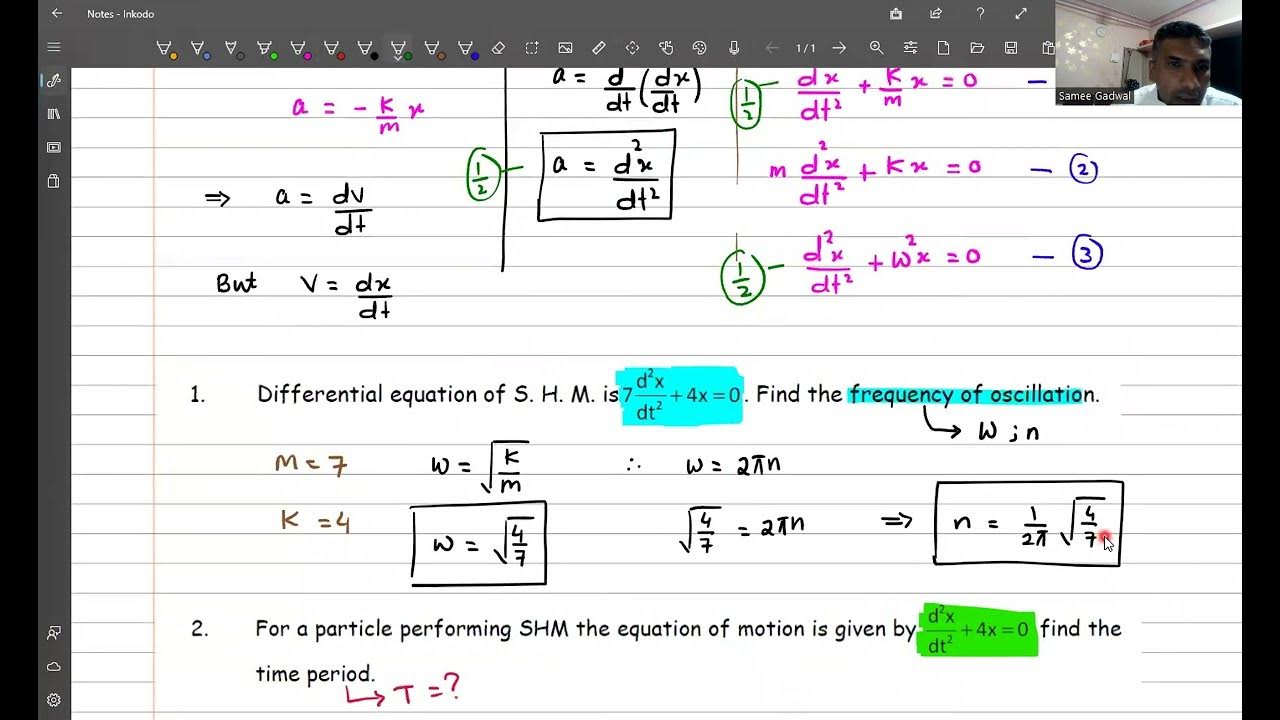 Notes - Inkodo
1/1
Samee Gadwal
a = - K/m x
⇒ a = dv/dt
But V = dx/dt
a = d/dt (dx/dt)
1/2 - a = d²x/dt²
1/2 - dx/dt² + K/m x = 0 -
m d²x/dt² + Kx = 0 - 2
1/2 - d²x/dt² + ω²x = 0 - 3
1. Differential equation of S. H. M. is 7 d²x/dt² + 4x = 0. Find the frequency of oscillation.
→ W ; n
M = 7 W = √K/m ∴ W = 2πn
K = 4 W = √4/7 √4/7 = 2πn ⇒ n = 1/2π √4/7
2. For a particle performing SHM the equation of motion is given by d²x/dt² + 4x = 0 find the
time period.
→ T = ?